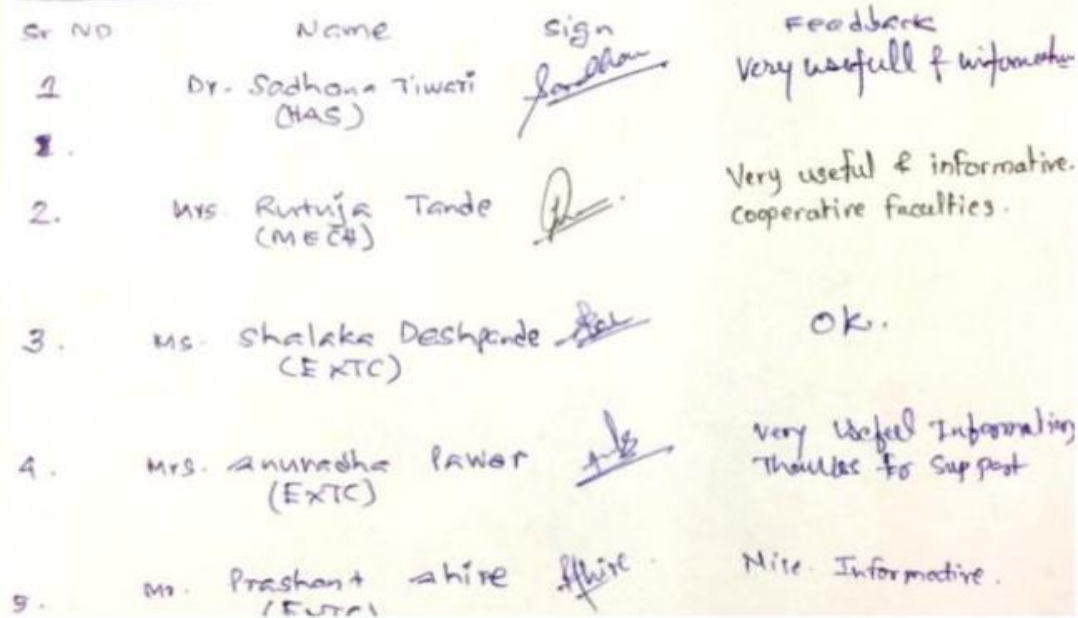 Sr NO Name Sign Feedback
1 Dr. Sadhana Tiwari Very usefull & informative
(HAS)
2. Mrs. Rutuja Tande Very useful & informative.
(MECH) cooperative faculties.
3. Ms. Shalaka Deshpande OK.
(EXTC)
4. Mrs. Anuradha Pawar Very Useful Information
(EXTC) Thanks for Support
5. Mr. Prashant Ahire Ahire Nice Informative.
(EXTC)